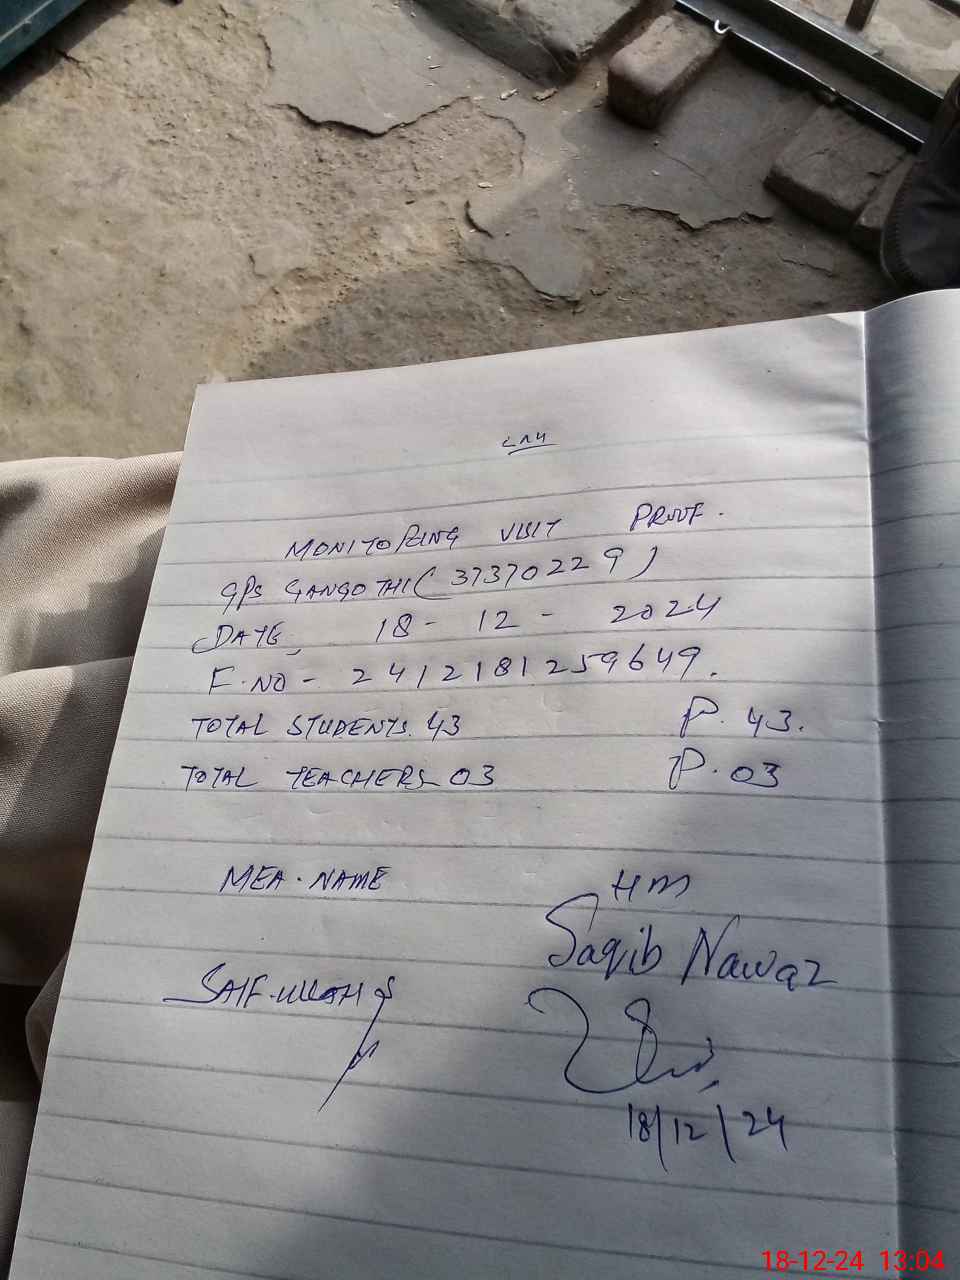 MONITORING VISIT PROOF.
GPS GANGOTHI (37370229)
DATE, 18 - 12 - 2024
F.NO - 2412181259649.
TOTAL STUDENTS. 43 P. 43.
TOTAL TEACHERS_03 P. 03
MEA. NAME HM
Saqib Nawaz
SAIF-ULLAH
18/12/24
18-12-24 13:04